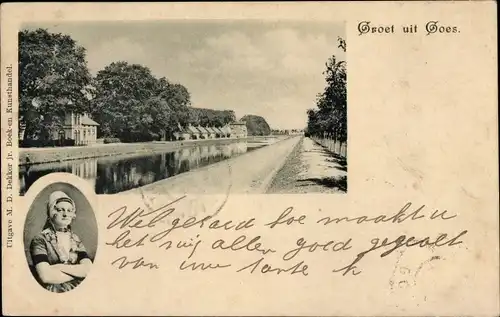 Groet uit Goes.
Uitgave M. D. Dekker jr. Boek-en Kunsthandel.
Wel geraed hoe maakt u
het zijt allen goed
van uwe tante